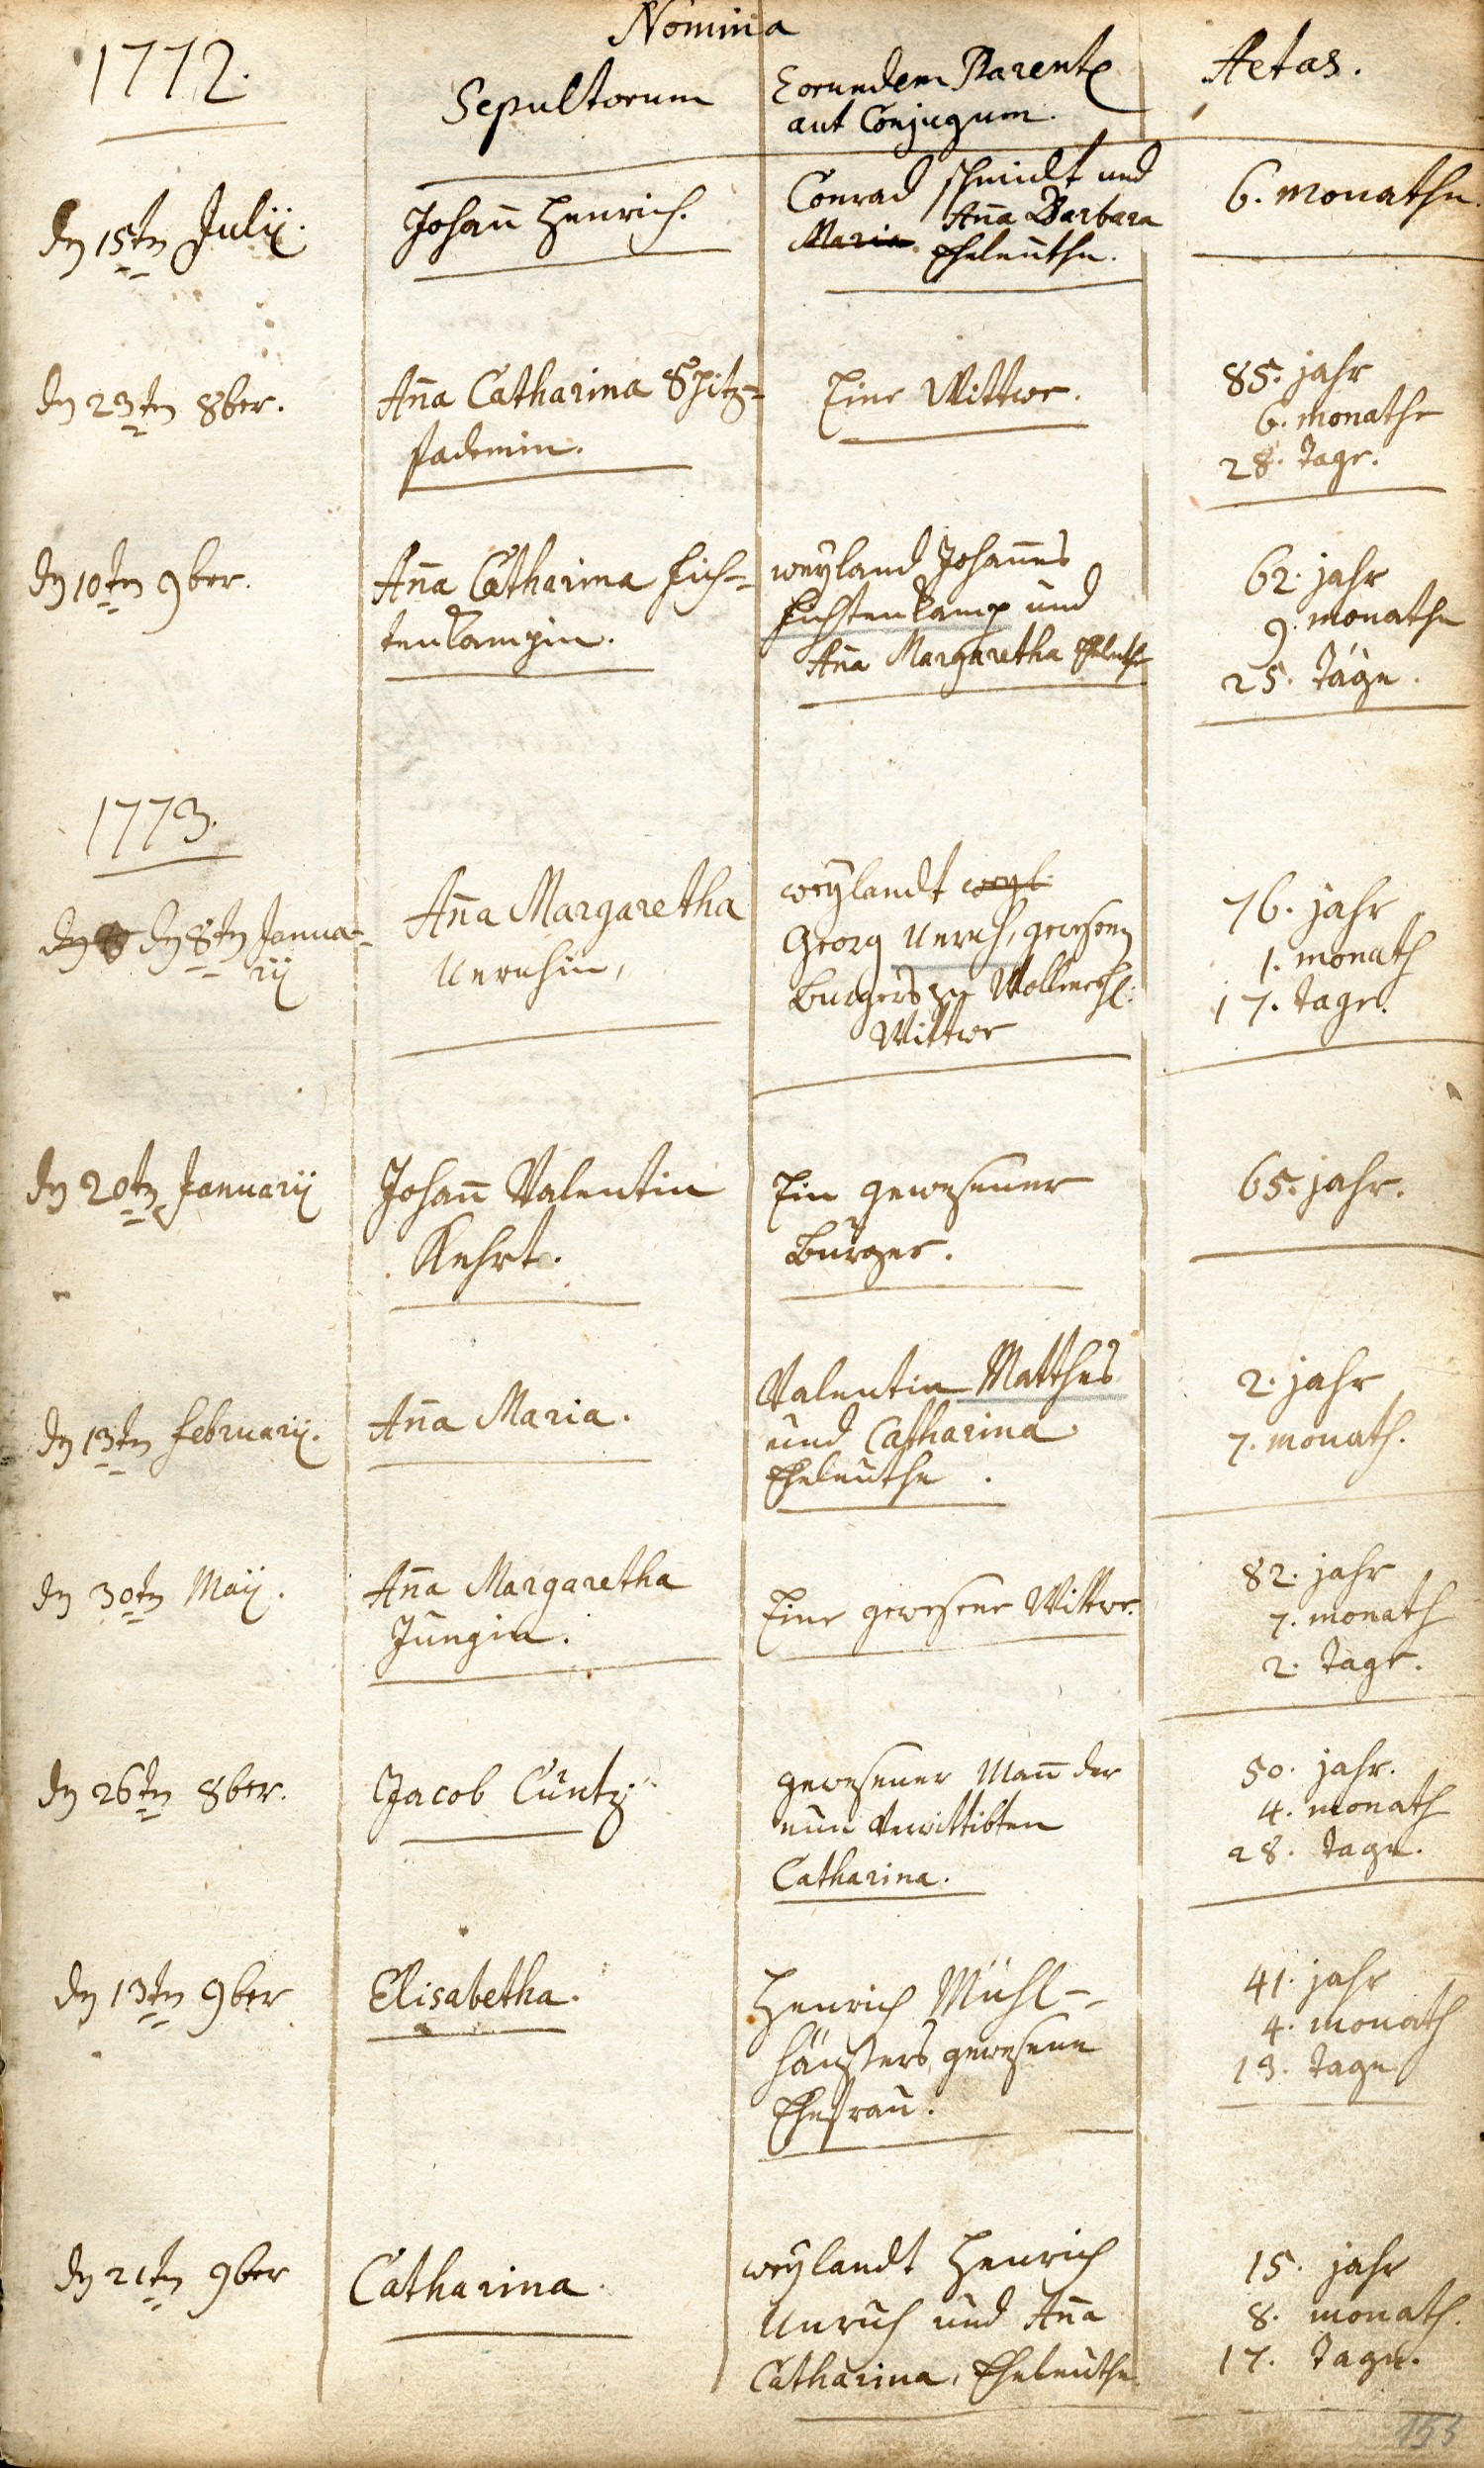 Nomina
1772.
Sepultorum
Eorundem Parent.
aut Conjugum.
Aetas.
dn 15tn Julij.
Johan̄ Henrich.
Conrad Schmidt und
Maria. An̄a Barbara
Eheleuthe.
6. monathe.
dn 23tn 8ber.
An̄a Catharina Spitz=
fademin.
Eine Wittwe.
85. jahr
6. monathe
28. tage.
dn 10tn 9ber.
An̄a Catharina Fich=
tenkampin.
weyland Johan̄es
Fichtenkamp und
An̄a Margaretha Eheleuthe
62. jahr
9. monathe
25. täge.
1773.
dn 8tn Janua=
rij
An̄a Margaretha
Unruhin,
weylandt weyl.
Georg Unruh, gewesen
Burgers zu
Wittwe
76. jahr
1. monath
17. tage.
dn 20tn Januarij
Johan̄ Valentin
Kehrt.
Ein gewesener
Bürger.
65. jahr.
dn 13tn Februarij.
An̄a Maria.
Valentin Matthes
und Catharina
Eheleuthe.
2. jahr
7. monath.
dn 30tn Maij.
An̄a Margaretha
Jungin.
Eine gewesene Wittwe.
82. jahr
7. monath
2. tage.
dn 26tn 8ber.
Jacob Cuntz.
gewesener Man̄ der
nun verwittibten
Catharina.
50. jahr.
4. monath
28. tage.
dn 13tn 9ber
Elisabetha.
Henrich Mühl=
häußers gewesene
Ehefrau.
41. jahr
4. monath
13. tage
dn 21tn 9ber
Catharina.
weylandt Henrich
Unruh und An̄a
Catharina, Eheleuthe.
15. jahr
8. monath.
17. tage.